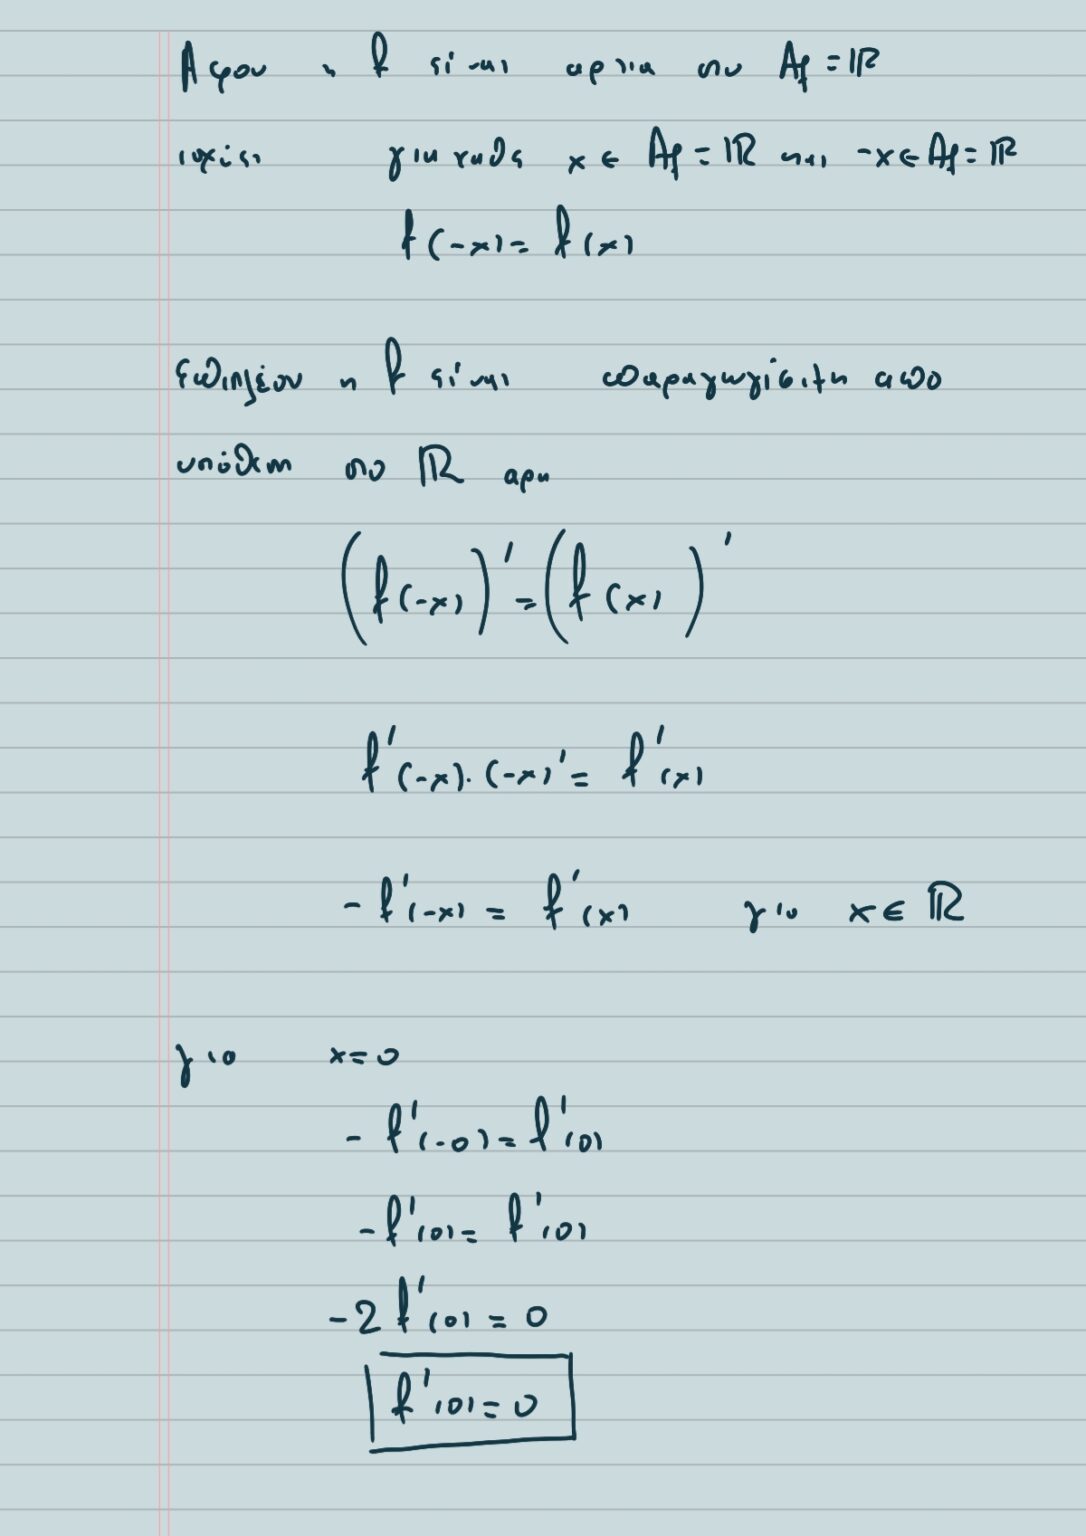 Αφου η f είναι αρτια στο Af = ℝ
ισχύει για καθε x ∈ Af = ℝ και -x ∈ Af = ℝ
f(-x) = f(x)
Επιπλέον η f είναι παραγωγίσιμη απο
υπόθεση στο ℝ αρα
(f(-x))' = (f(x))'
f'(-x)·(-x)' = f'(x)
-f'(-x) = f'(x) για x ∈ ℝ
για x=0
-f'(-0) = f'(0)
-f'(0) = f'(0)
-2f'(0) = 0
f'(0) = 0